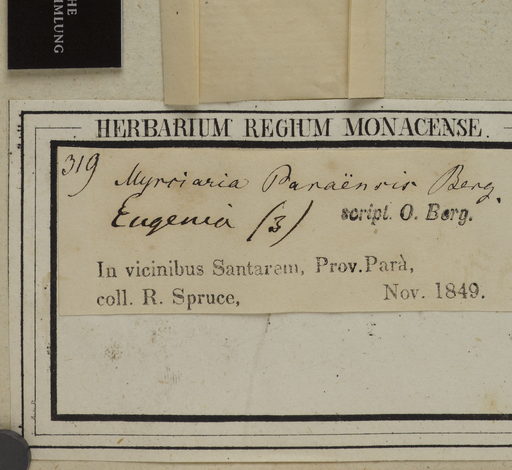 HE
MMLUNG
HERBARIUM REGIUM MONACENSE.
319
Myrciaria Paraënsis Berg.
Eugenia (3) script. O. Berg.
In vicinibus Santarem, Prov. Parà,
coll. R. Spruce, Nov. 1849.